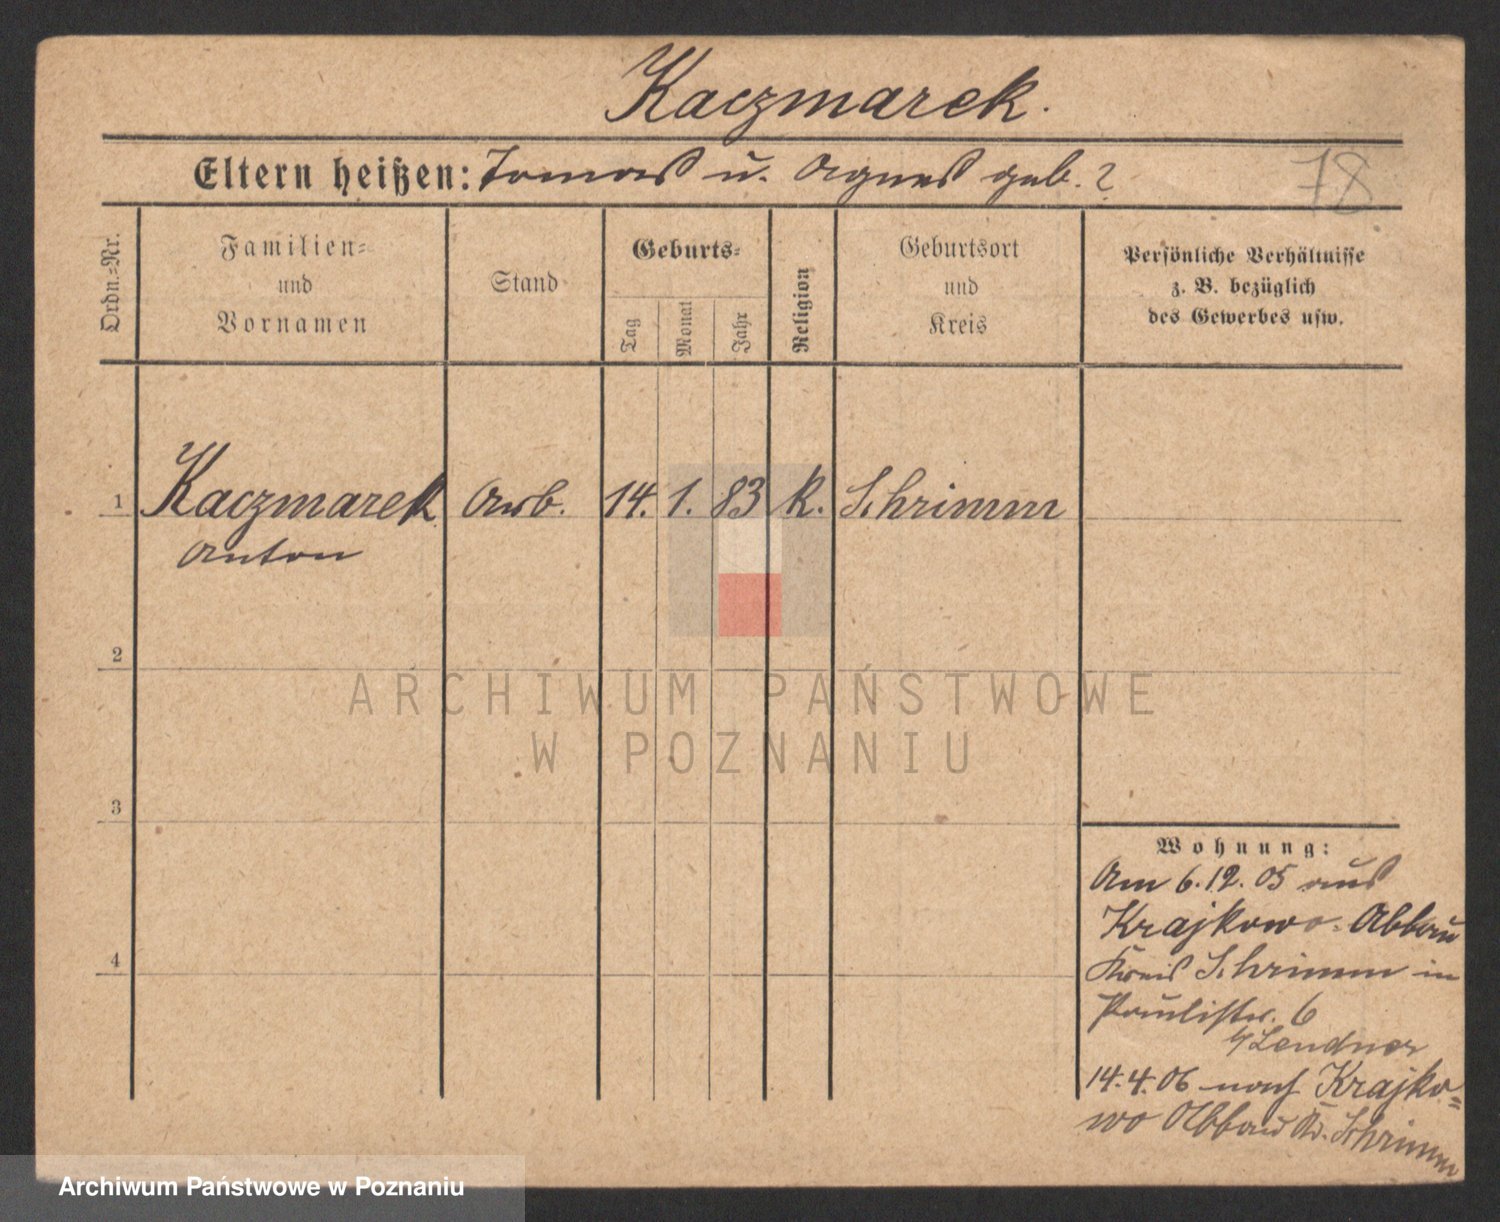 Kaczmarek.
Eltern heißen: Tomas u. Agnes geb. ?
78
Ordn.=Nr.
Familien=
und
Vornamen
Stand
Geburts=
Tag
Monat
Jahr
Religion
Geburtsort
und
Kreis
Persönliche Verhältnisse
z. B. bezüglich
des Gewerbes usw.
1 Kaczmarek Arb. 14. 1. 83 k. Schrimm
Anton
2
ARCHIWUM PAŃSTWOWE
W POZNANIU
3
4
Wohnung:
Am 6.12.05 aus
Krajkowo-Abbau
Kreis Schrimm in
Paulistr. 6
b/Lendner
14.4.06 nach Krajko=
wo Abbau Kr. Schrimm
Archiwum Państwowe w Poznaniu